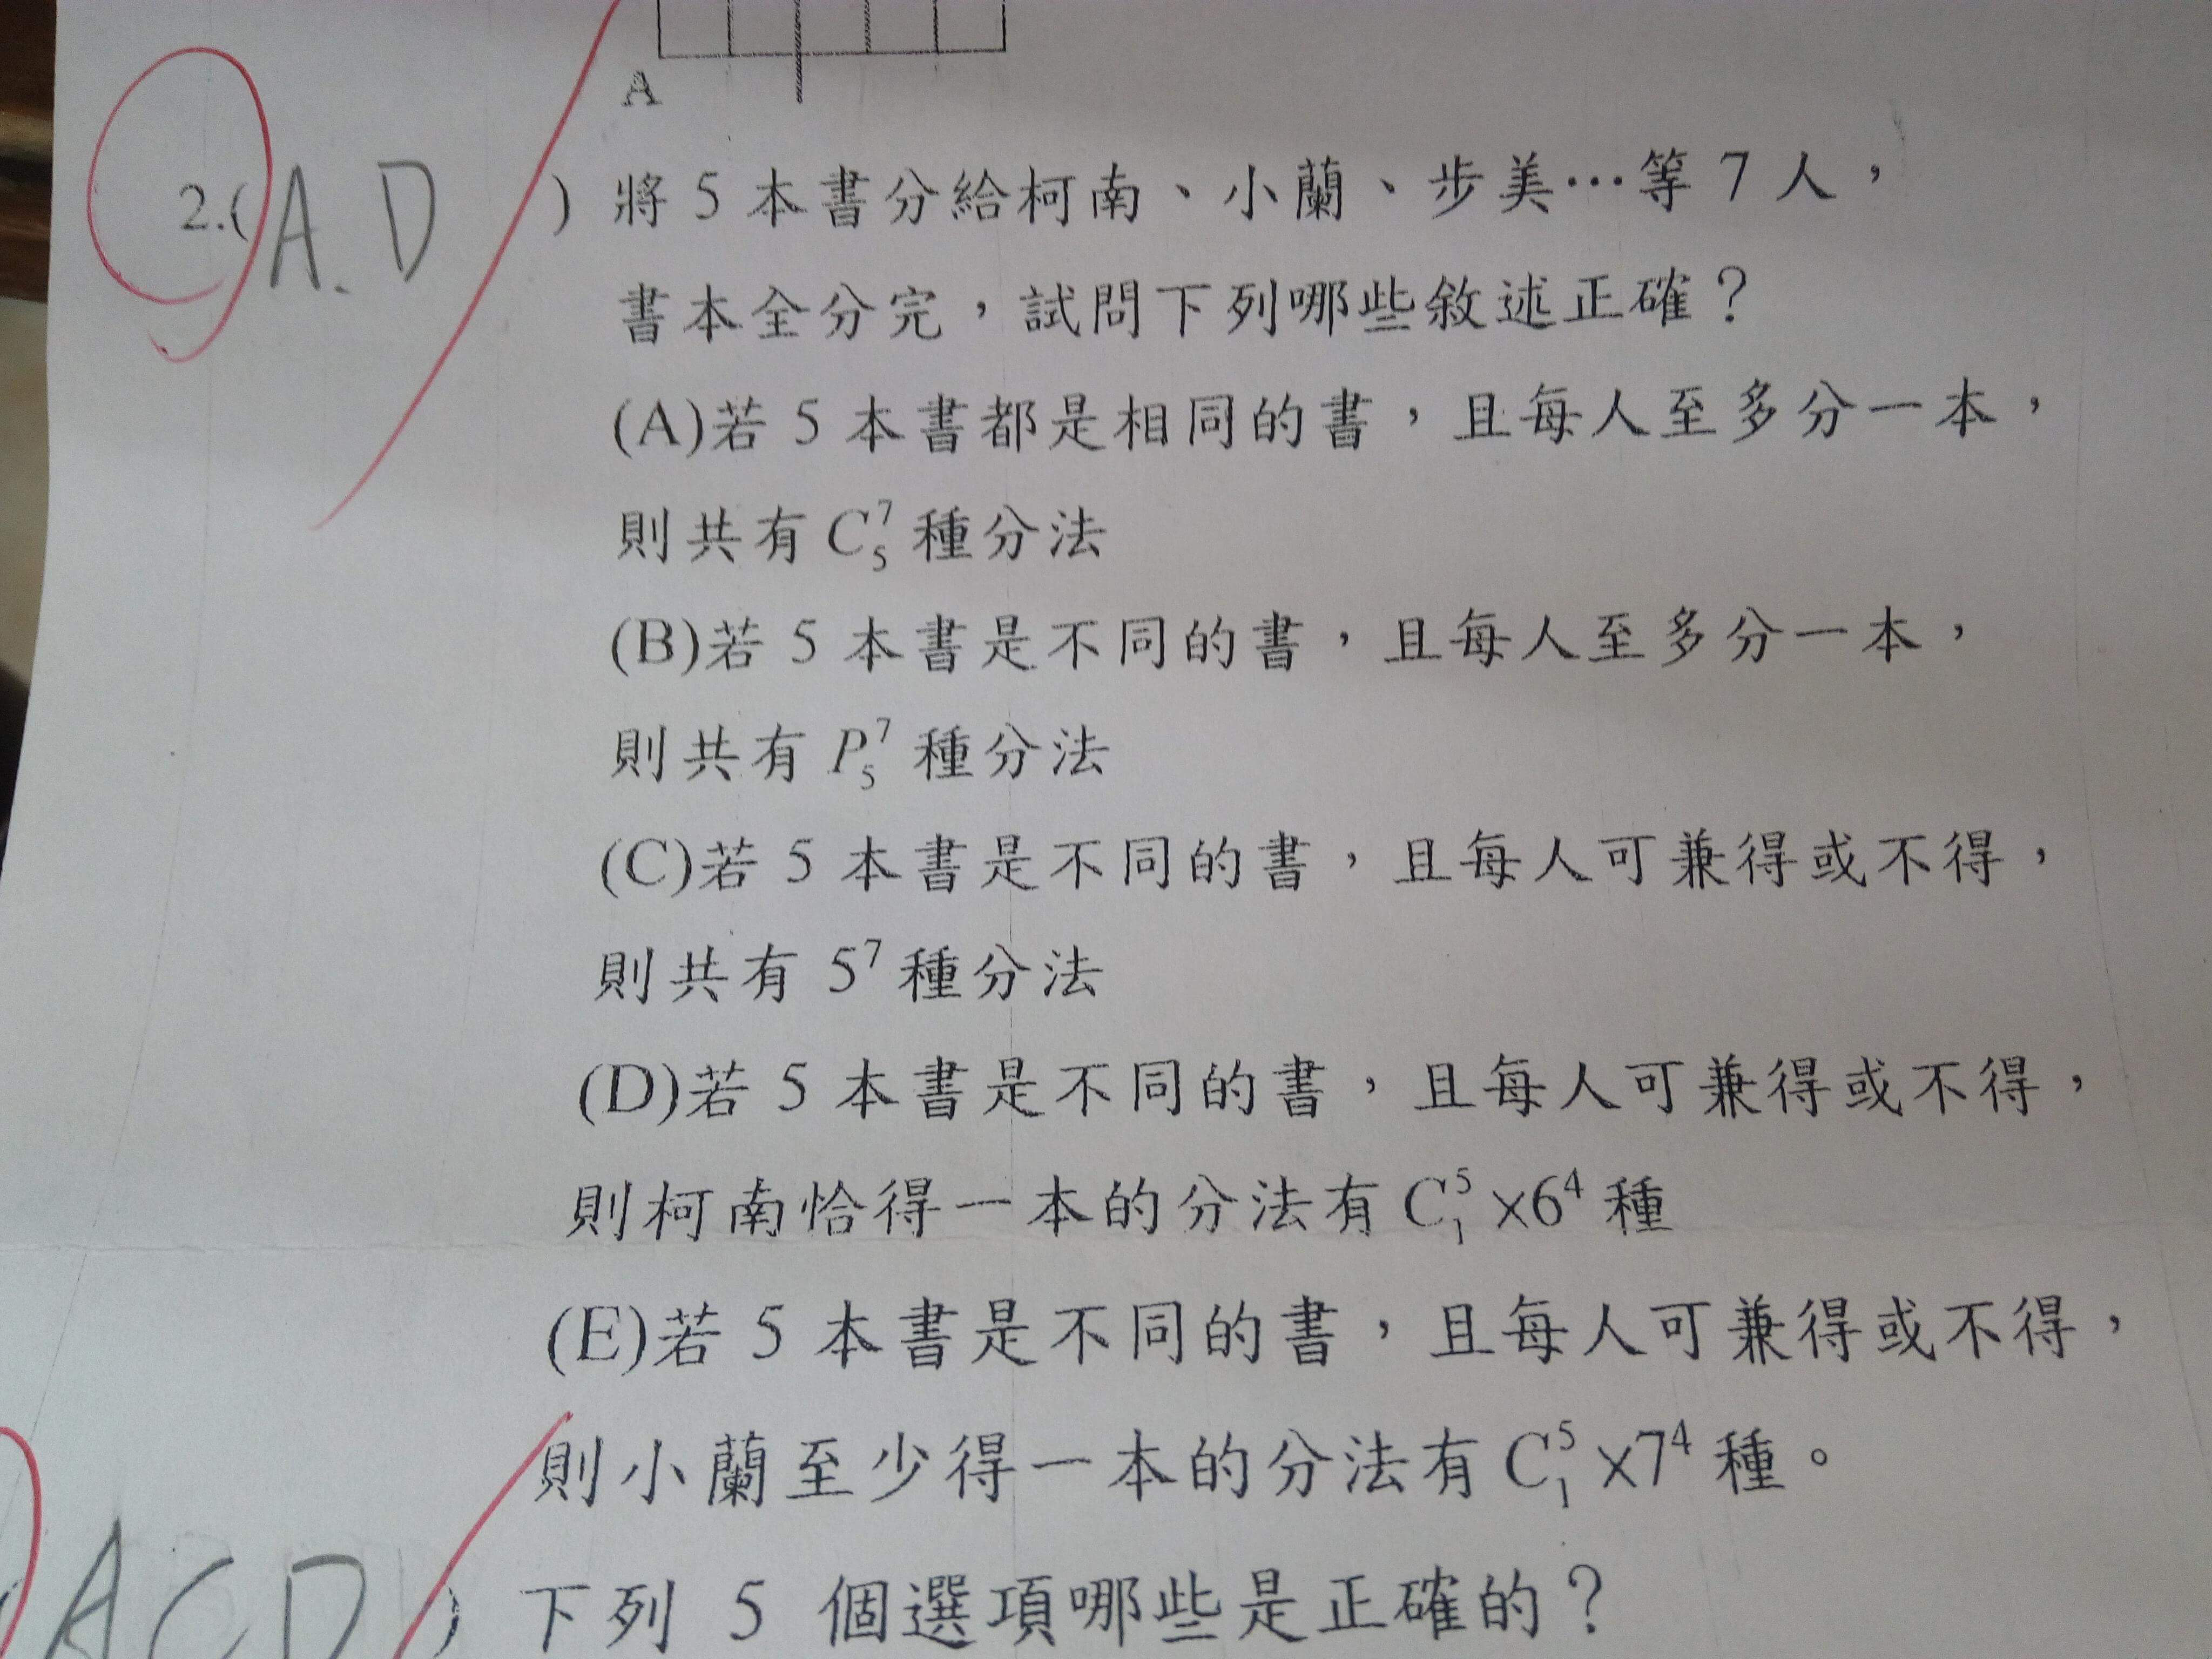 A
2.( A.D ) 將 5 本書分給柯南、小蘭、步美…等 7 人，
書本全分完，試問下列哪些敘述正確？
(A)若 5 本書都是相同的書，且每人至多分一本，
則共有 C⁷₅ 種分法
(B)若 5 本書是不同的書，且每人至多分一本，
則共有 P⁷₅ 種分法
(C)若 5 本書是不同的書，且每人可兼得或不得，
則共有 5⁷ 種分法
(D)若 5 本書是不同的書，且每人可兼得或不得，
則柯南恰得一本的分法有 C⁵₁ ×6⁴ 種
(E)若 5 本書是不同的書，且每人可兼得或不得，
則小蘭至少得一本的分法有 C⁵₁ ×7⁴ 種。
( ACD ) 下列 5 個選項哪些是正確的？